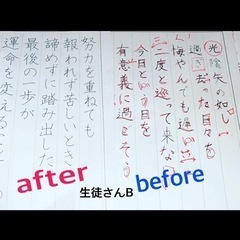 光陰矢の如し
過ぎ った日々を
悔やんでも
二度と巡って来な
今日という日を
有意義に過ごそう
努力を重ねても
報われず苦しいとき
諦めずに踏み出した
最後の一歩が
運命を変えること
after
生徒さんB
before